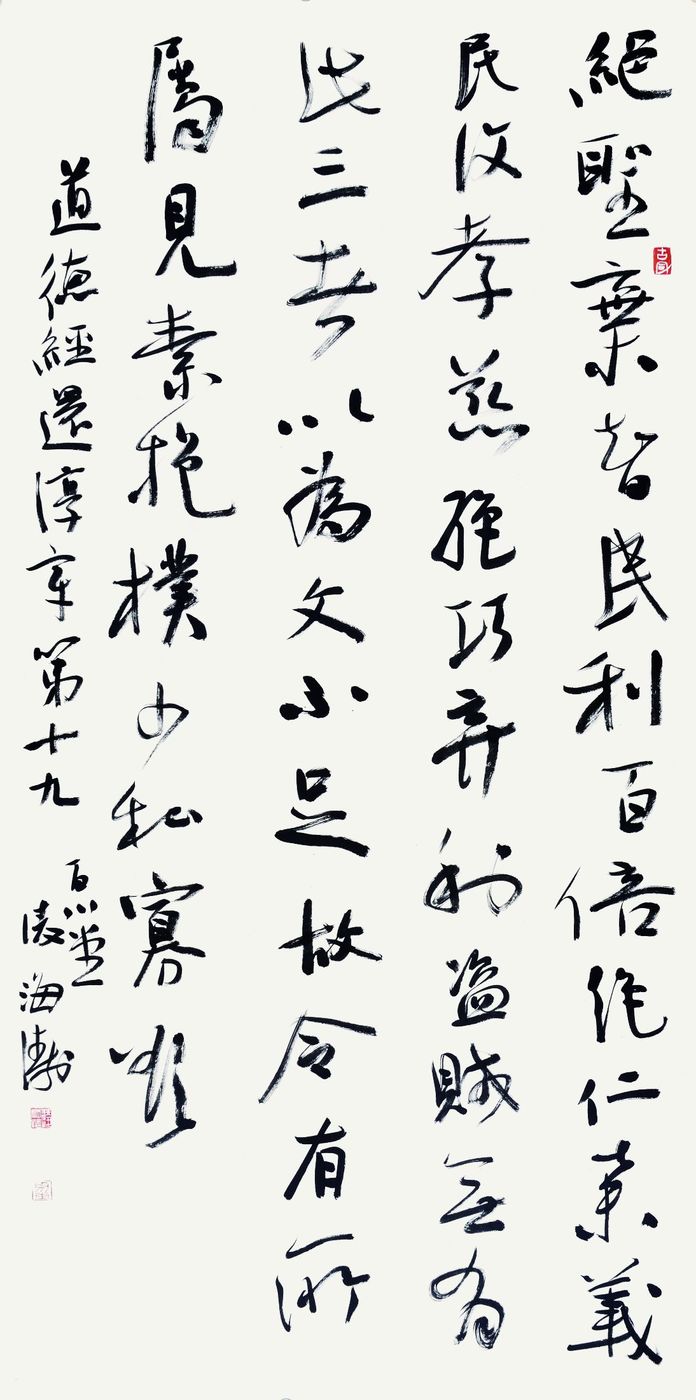 絕聖棄智民利百倍絕仁棄義
民復孝慈絕巧弃利盜賊無有
此三者以為文不足故令有所
屬見素抱樸少私寡欲
道德經還淳章第十九
海濤